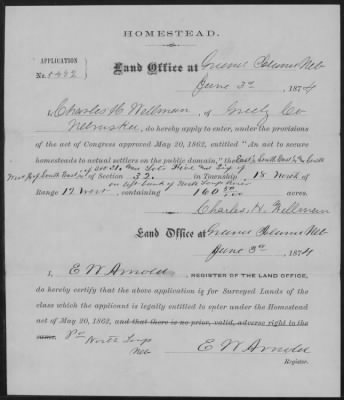 HOMESTEAD.
APPLICATION
No. 5492
Land Office at Grand Island Neb
June 3rd, 1874
I, Charles H. Wellman, of Greely Co
Nebraska, do hereby apply to enter, under the provisions
of the act of Congress approved May 20, 1862, entitled "An act to secure
homesteads to actual settlers on the public domain," the East ½ South East ¼ South
West ¼ of South East ¼ of Sec 31 and Lots Five
of Section 32, in Township 18 North of
on left bank of North Loup River
Range 12 West, containing 160 50/100 acres.
Charles H. Wellman
Land Office at Grand Island Neb
June 3rd, 1874
I, E W Arnold, REGISTER OF THE LAND OFFICE,
do hereby certify that the above application is for Surveyed Lands of the
class which the applicant is legally entitled to enter under the Homestead
act of May 20, 1862, and that there is no prior, valid, adverse right to the
same. Po North Loup
Neb
E W Arnold
Register.